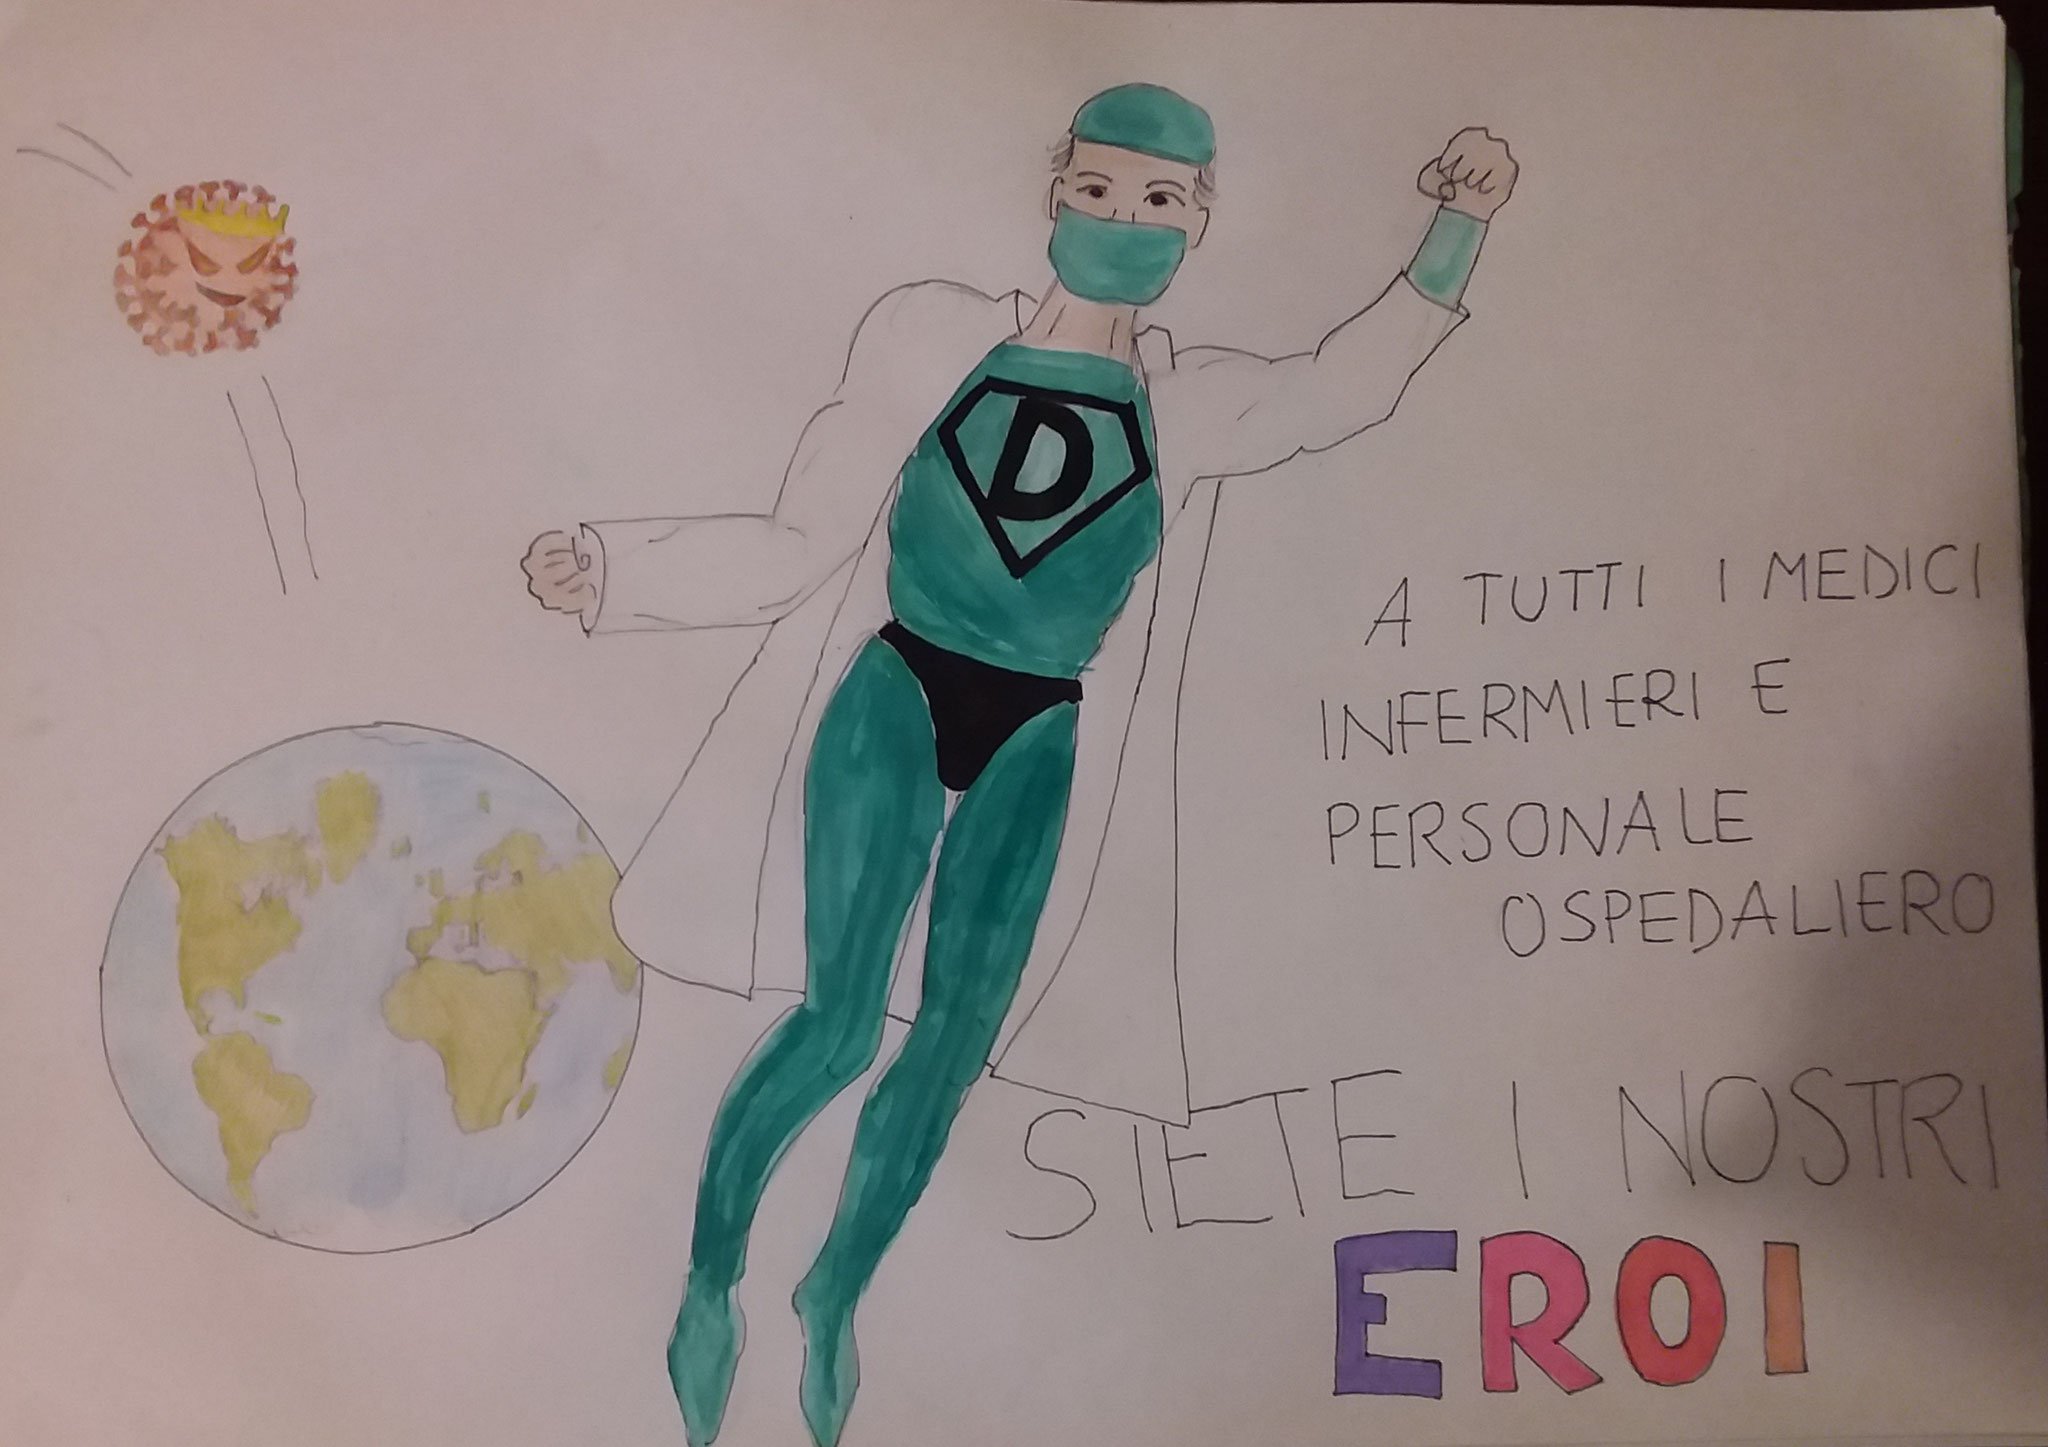 D
A TUTTI I MEDICI
INFERMIERI E
PERSONALE
OSPEDALIERO
SIETE I NOSTRI
EROI